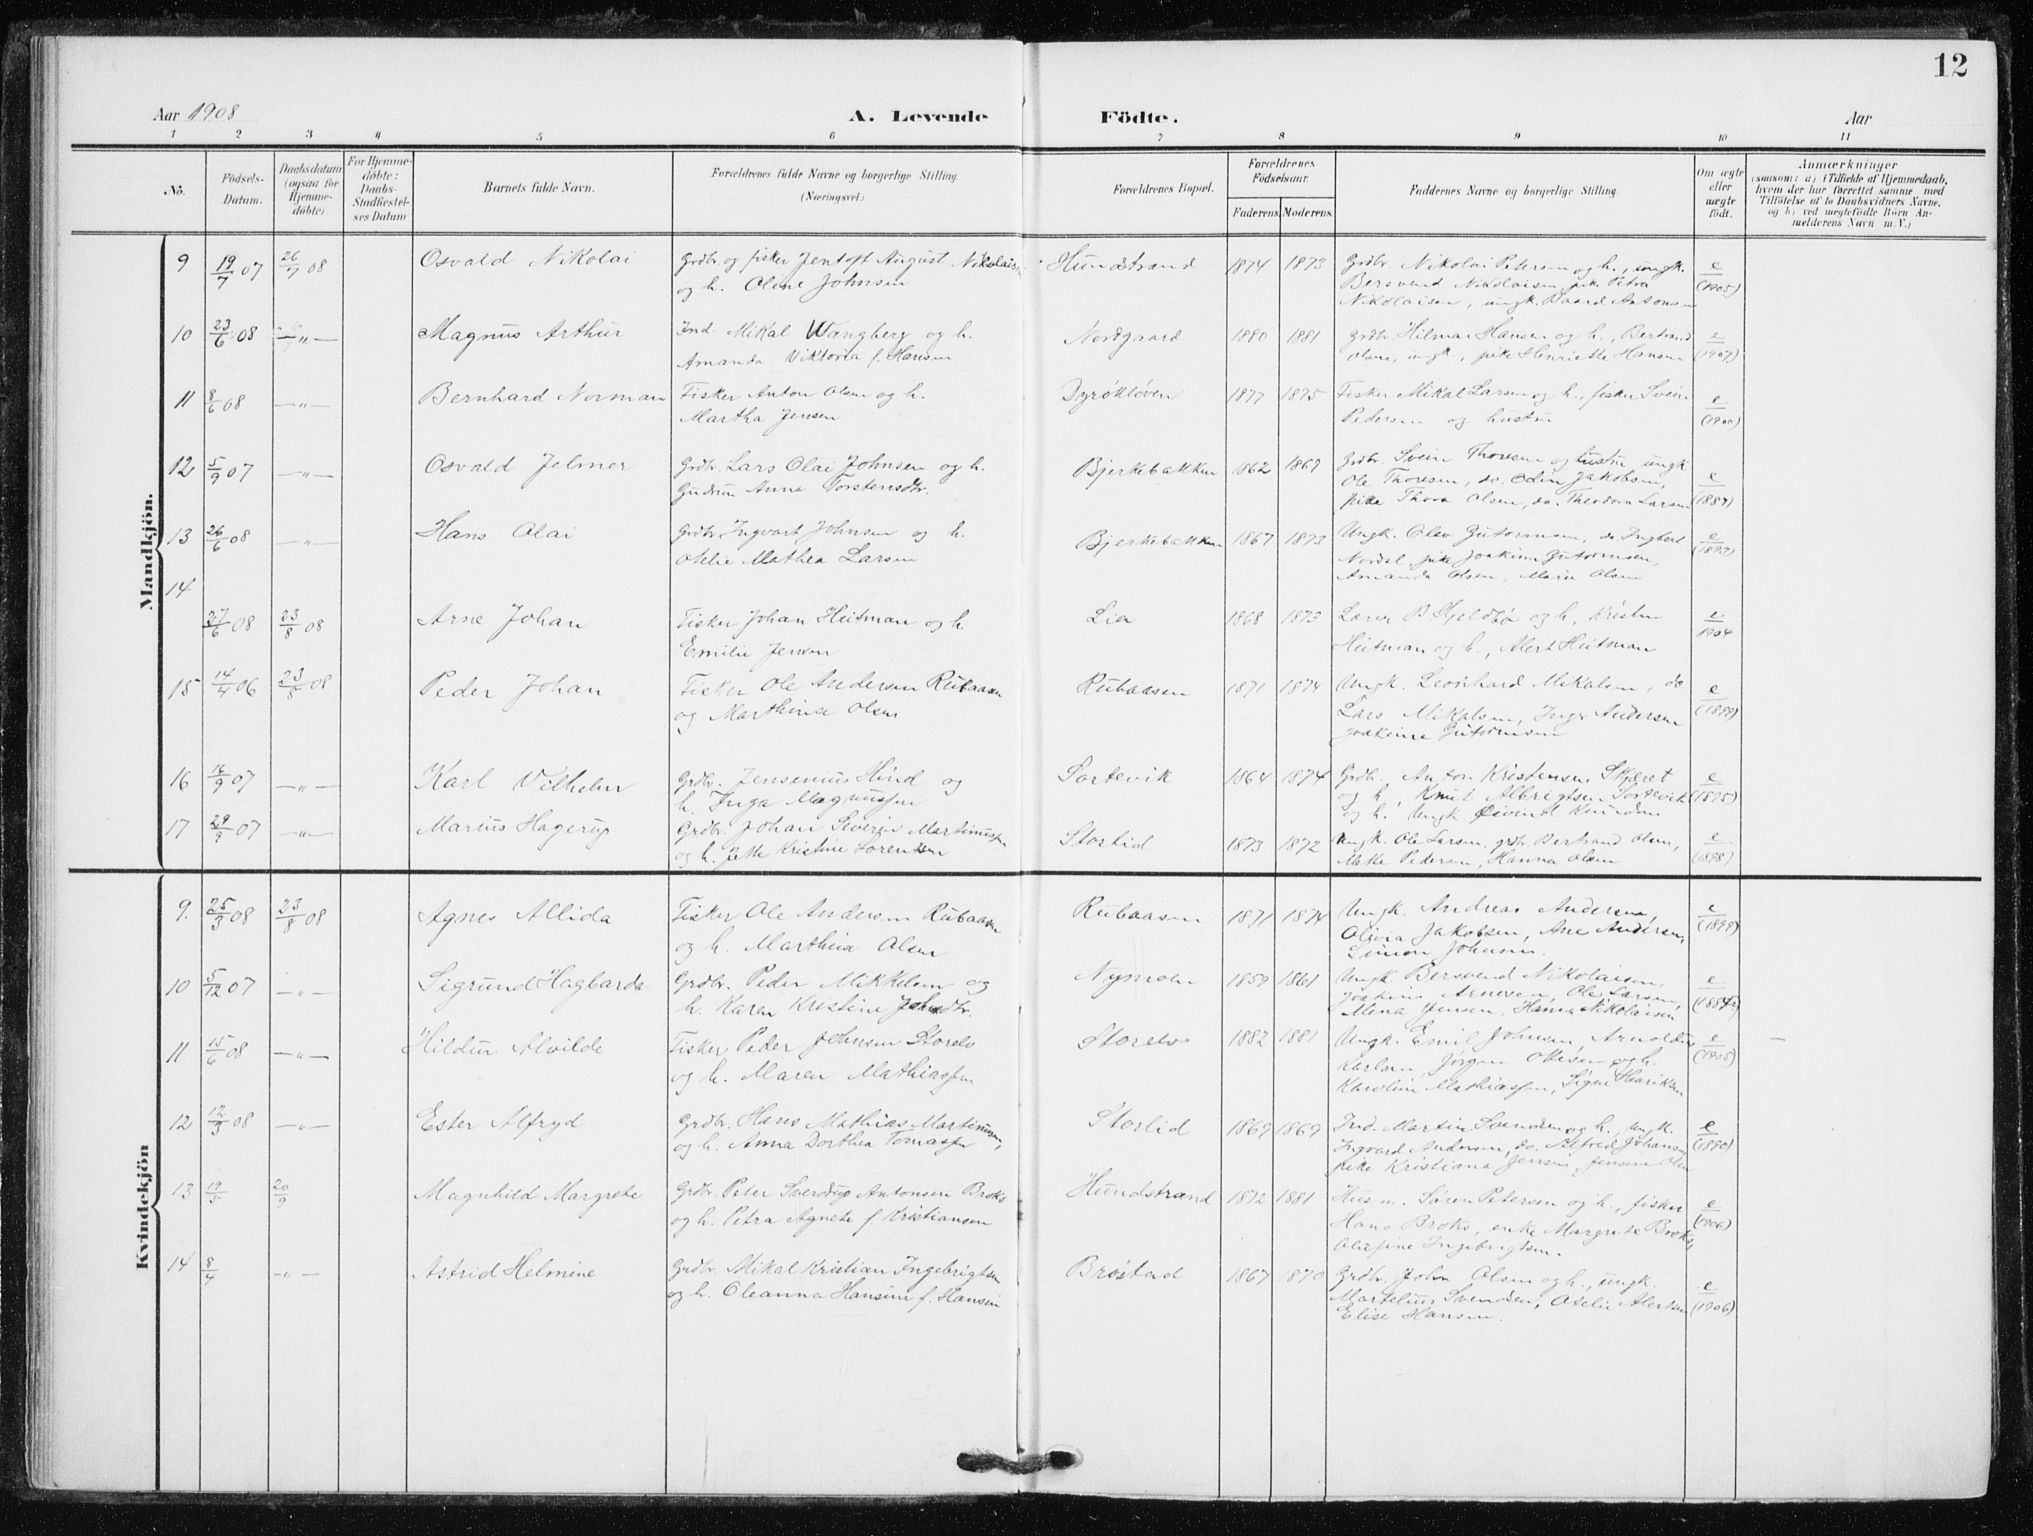 12
Aar 1908
A. Levende Födte.
Aar
1 2 3 4 5 6 7 8 9 10 11
No.
Födsels-Datum.
Daabsdatum (ogsaa for Hjemme-döbte)
For Hjemme-döbte: Daabs-Stadfæstelses Datum
Barnets fulde Navn.
Forældrenes fulde Navne og borgerlige Stilling. (Næringsvei.)
Forældrenes Bopæl.
Forældrenes Födselsaar.
Faderens. Moderens.
Faddernes Navne og borgerlige Stilling.
Om ægte eller uægte födt.
Anmærkninger
(saasom: a) i Tilfælde af Hjemmedaab,
hvem der har forrettet samme, med
Tilföielse af to Daabsvidners Navne,
og b) ved uægtefödte Börn An-
melderens Navn m. V.)
Mandkjön.
9 19/7 07 26/7 08 Osvald Nikolai Grdbr. og fisker Jentoft August Nikolaisen Hundstrand 1874 1873 Grdbr. Nikolai Petersen og h., ungk. e
og h. Oline Johnsen Bersvend Nikolaisen, pike Petra (1905)
Nikolaisen, ungk. Baard Antonsen
10 23/6 08 —"— Magnus Arthur Ind. Mikal Wangberg og h. Nordgaard 1880 1881 Grdbr. Hilmar Hansen og h., Bertrand e
Amanda Viktoria f. Hansen Olsen, ungk., pike Henriette Hansen (1907)
11 8/6 08 —"— Bernhard Norman Fisker Anton Olsen og h. Dyrökløven 1877 1875 Fisker Mikal Larsen og h., fisker Svein e
Martha Jensen Pedersen og hustru (1900)
12 5/9 07 —"— Osvald Jelmer Grdbr. Lars Olai Johnsen og h. Bjerkebakken 1862 1867 Grdbr. Svein Thoresen og hustru, ungk e
Gudrun Anna Torstensdtr. Ole Thoresen, do. Odin Jakobsen, (1887)
pike Thora Olsen, do. Theodora Larsen
13 26/6 08 —"— Hans Olai Grdbr. Ingvart Johnsen og h. Bjerkebakken 1867 1873 Ungk. Olav Gutormsen, do Ingbert e
Otelie Mathea Larsen Nordal, pike Joakime Gutormsen, (1897)
Amanda Olsen, Marie Olsen
14
27/6 08 23/8 08 Arne Johan Fisker Johan Heitman og h. Lia 1868 1873 Lærer B. Hjeldbø og h., Kristen e
Emilie Jensen Heitman og h., Alert Heitman 1904
15 14/4 06 23/8 08 Peder Johan Fisker Ole Andersen Rubaasen Rubaasen 1871 1874 Ungk. Leonhard Mikalsen, do e
og Marthina Olsen Lars Mikalsen, Inger Andersen (1899)
Joakime Gutormsen
16 16/9 07 —"— Karl Vilhelm Grdbr. Jensenius Hind og Sortevik 1864 1874 Grdbr. Anton Kristensen Skjæret e
h. Inga Magnussen og h., Knut Albrigtsen Sortevik (1895)
og h. Ungk Øivind Knudsen
17 29/9 07 —"— Marius Hagerup Grdbr. Johan Severin Martinussen Storlid 1873 1872 Ungk. Ole Larsen, grdb. Bertrand Olsen, e
og h. Jette Kristine Lorentsen Mette Pedersen, Hanna Olsen (1898)
Kvindekjön
9. 25/3 08 23/8 08 Agnes Allida Fisker Ole Andersen Rubaasen Rubaasen 1871 1874 Ungk. Andreas Andersen, e
og h. Marthina Olsen Olivia Jakobsen, Ane Andersen, (1899)
Simon Johnsen.
10 5/12 07 —"— Sigrund Hagbarda Grdbr. Peder Mikkelsen og Nymoen 1859 1861 Ungk Bersvend Nikolaisen, e
h. Karen Kristine Johnsdtr. Joakim Arnesen, Ole Larsen,
Mina Jensen, Hanna Nikolaisen
11 15/6 08 —"— Hildur Alvilde Fisker Peder Johnsen Storelv Storelv 1882 1881 Ungk. Emil Johnsen, Arnoldus e —
og h. Maren Mathiassen Karlsen, Jörgen Ottesen og h. (1905)
Karoline Mathiassen, Signe Henriksen
12 12/3 08 —"— Ester Alfryd Grdbr. Hans Mathias Martinussen, Storlid 1869 1869 Ind. Martin Svendsen og h., ungk. e
og h. Anna Dorthea Tomassen Ingvard Andersen, do. Alfred Johansen (1890)
pike Kristiana Jensen, Jensine Olsen
13 19/5 20/9 Magnhild Margrete Grdbr. Peter Sverdrup Antonsen Broks Hundstrand 1872 1881 Husm. Søren Petersen og h., fisker e
og h. Petra Agnete f. Kristiansen Hans Broks, enke Margrete Broks, (1906)
Oluffine Ingebrigtsen.
14 8/4 —"— Astrid Helmine Grdbr. Mikal Kristian Ingebrigtsen Bröstad 1867 1870 Grdbr. John Olsen og h., ungk. e
og h. Oleanna Hansine f. Hansen Martelius Svendsen, Otelie Alertsen (1906)
Elise Hansen.